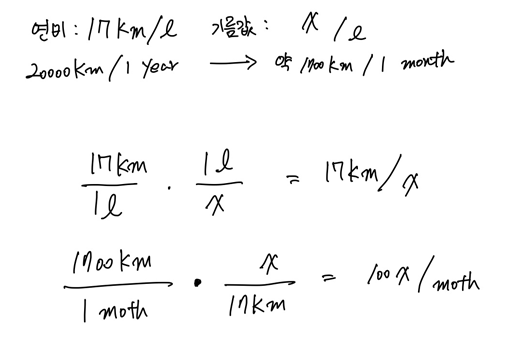 연비: 17km/l 기름값: x/l
20000km/1 year → 약 1700km/1 month
17km/1l · 1l/x = 17km/x
1700km/1 moth · x/17km = 100x/moth